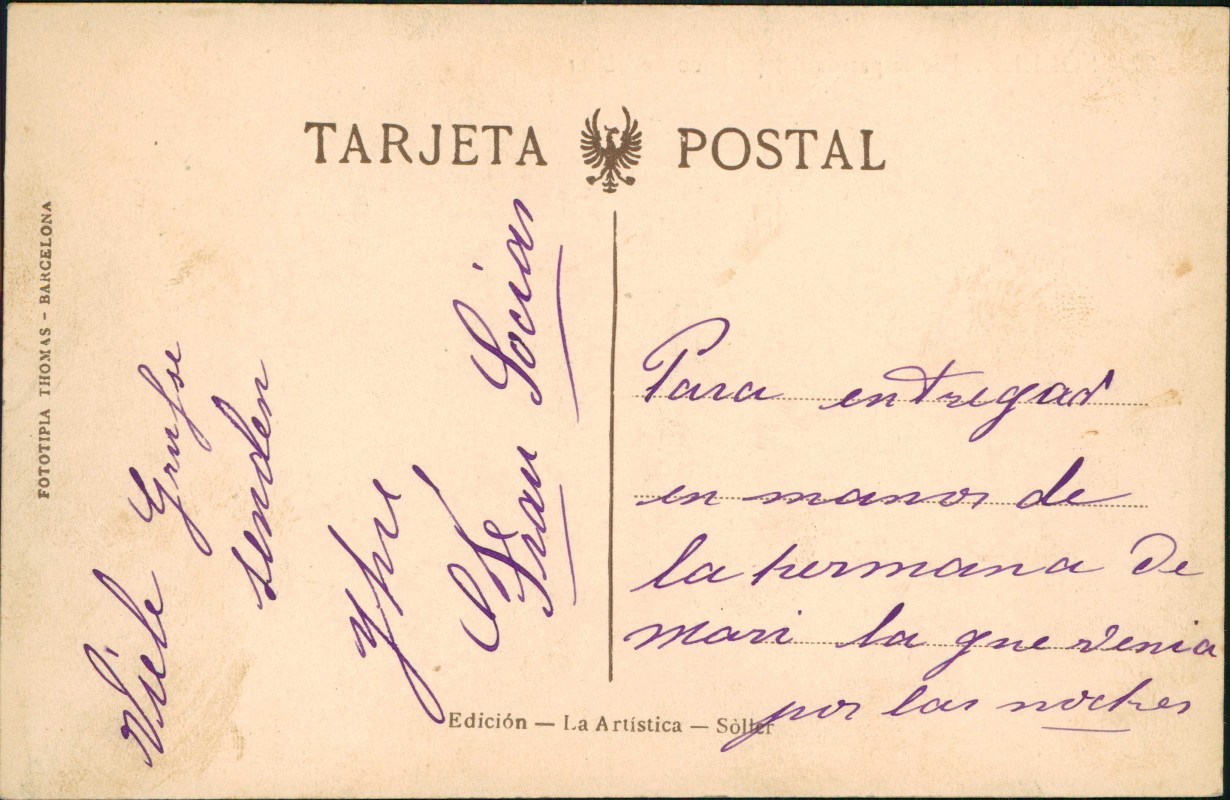 TARJETA POSTAL
FOTOTIPIA THOMAS - BARCELONA
Viele Grüsse
senden
Yhre
Frau Socias
Para entregar
en manos de
la hermana de
Mari la que venia
por las noches
Edición — La Artística — Sòller